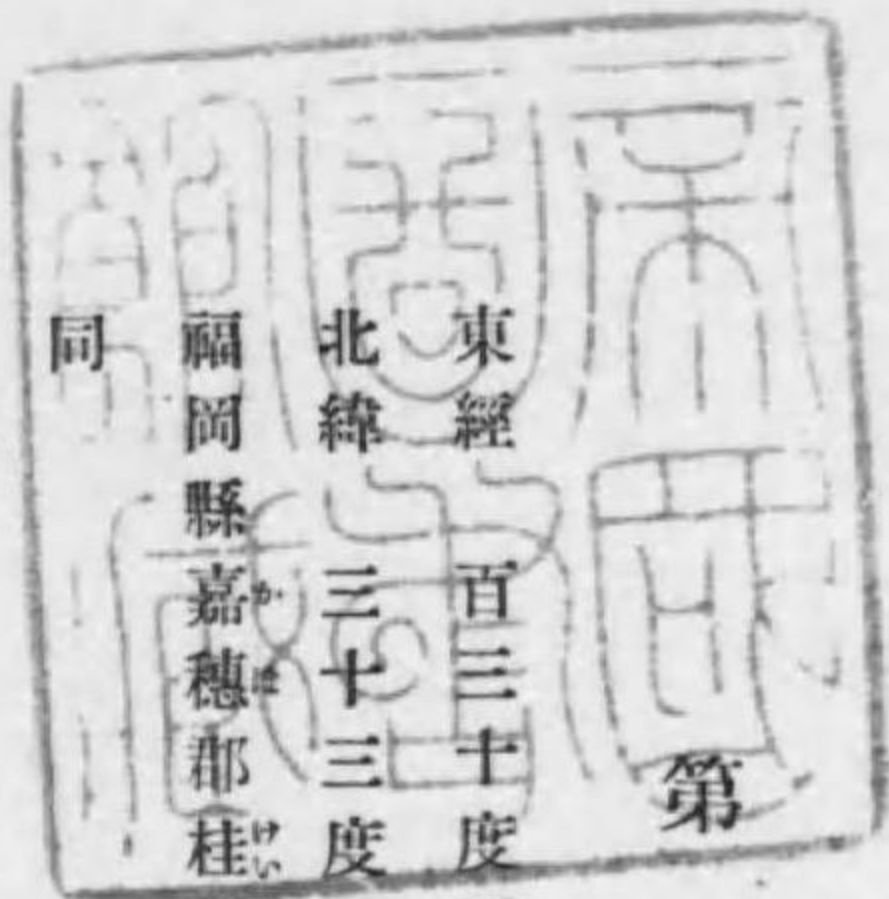 第
東經百三十度
北緯三十三度
福岡縣嘉穗郡桂
かほ
けい
同